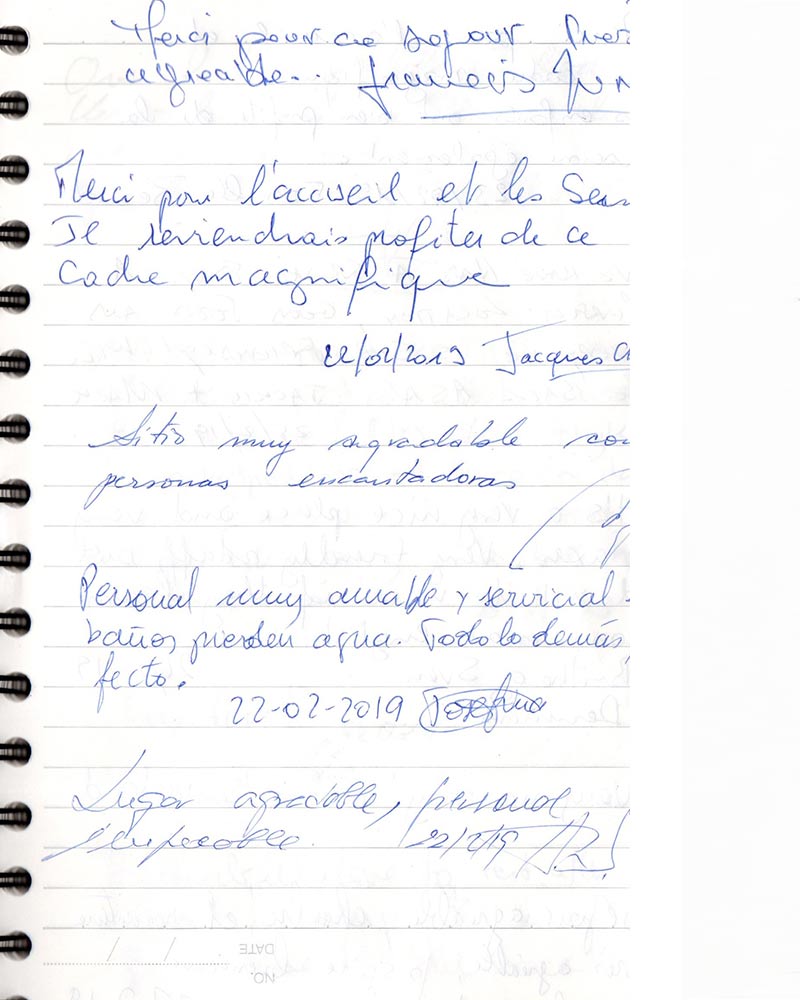 Merci pour ce sejour
agréable.. Francois
Merci pour l'accueil et les
Je reviendrais profiter de ce
Cadre magnifique
22/02/2019 Jacques
Sitio muy agradable con
personas encantadoras
Personal muy amable y servicial.
baños pierden agua. Todo lo demás,
fecto.
22-02-2019 Josefina
Lugar agradable, personal
impecable. 22/2/19
DATE
NO.